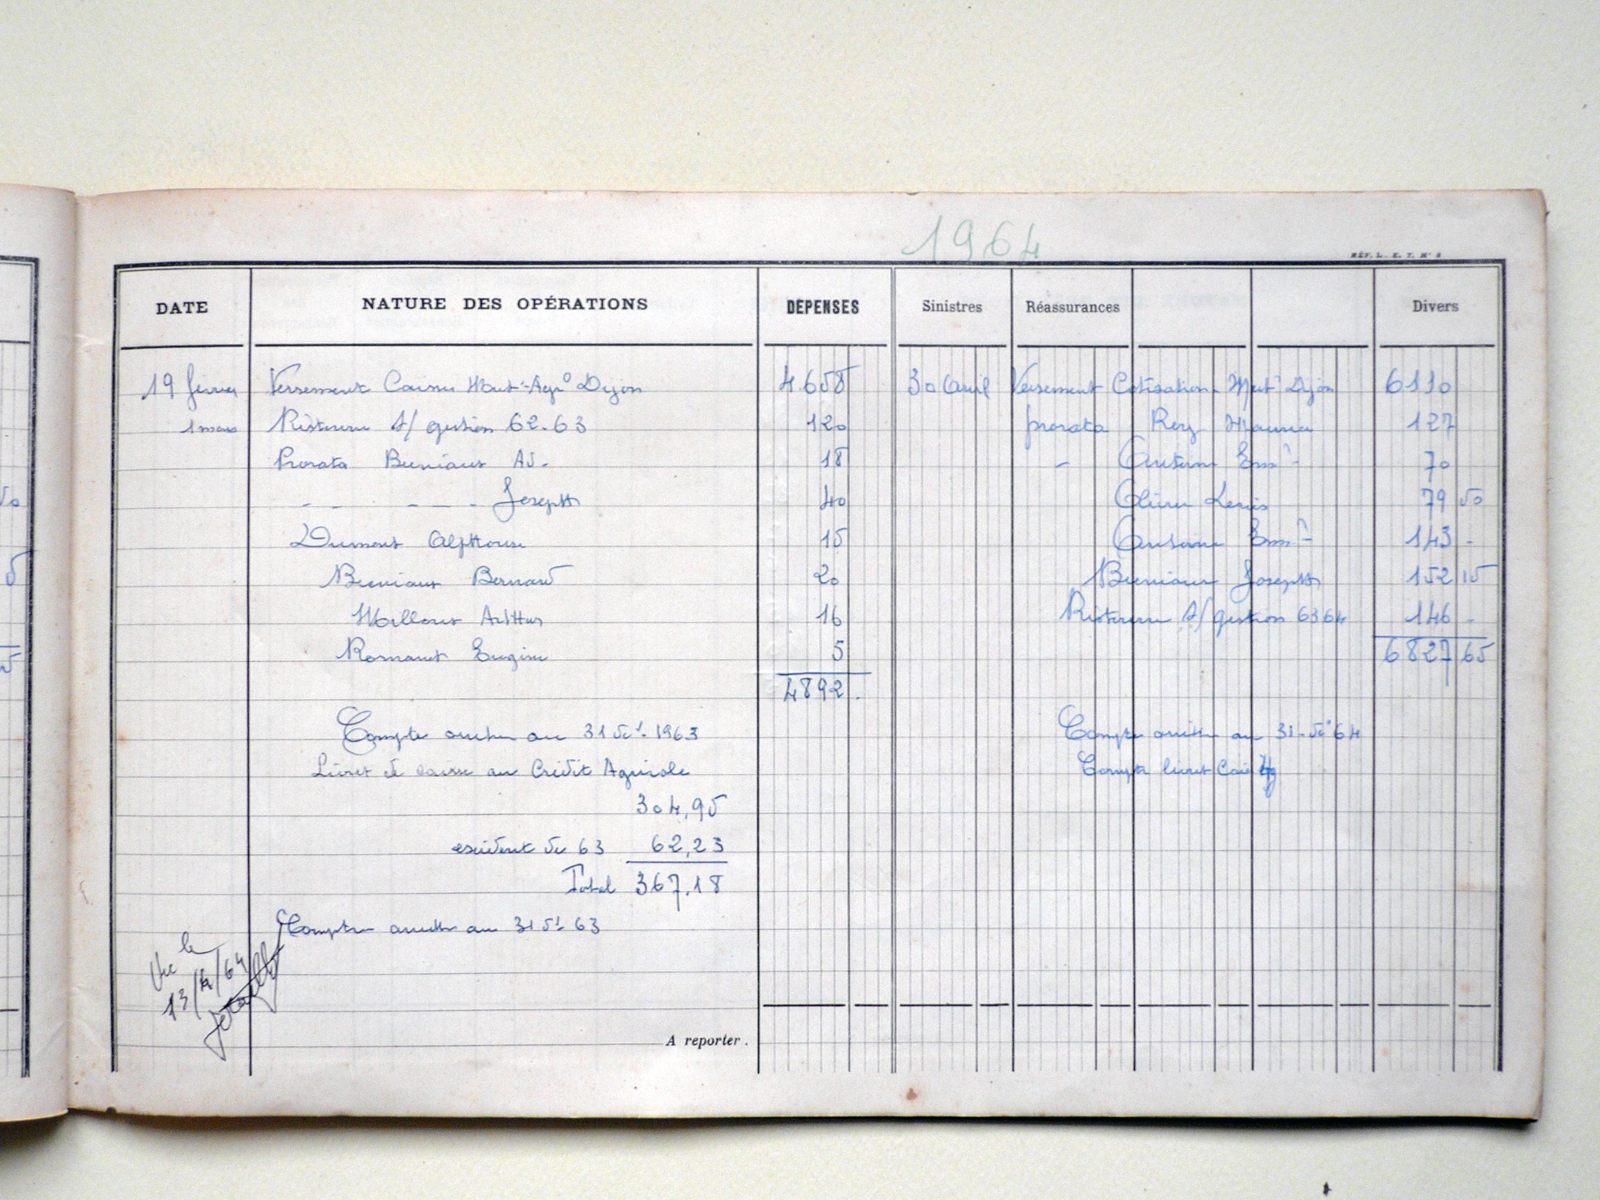 1964
RÉF. L. E. T. N° 8
DATE NATURE DES OPÉRATIONS DÉPENSES Sinistres Réassurances Divers
19 février Versement Caisse Mut- Agr Dijon 4658 30 avril Versement Cotisation Mut Dijon 6110
1 mars Ristourne s/ gestion 62-63 120 prorata Roy Maurice 127
Prorata 18 - 70
- - - - - Joseph 40 Olivier 79 50
Dumont Alphonse 15 143 -
Bernard 20 Joseph 152 15
Arthur 16 Ristourne s/ gestion 63 64 146 -
Romanet Eugène 5 6827 65
4892.
Compte arrêté au 31 Dé 1963 Compte arrêté au 31-Dé 64
Livret de caisse au Crédit Agricole Compte livret
304,95
excédent de 63 62,23
Total 367,18
Compte arrêté au 31 D 63
Vu le
13/4/64
A reporter.
50